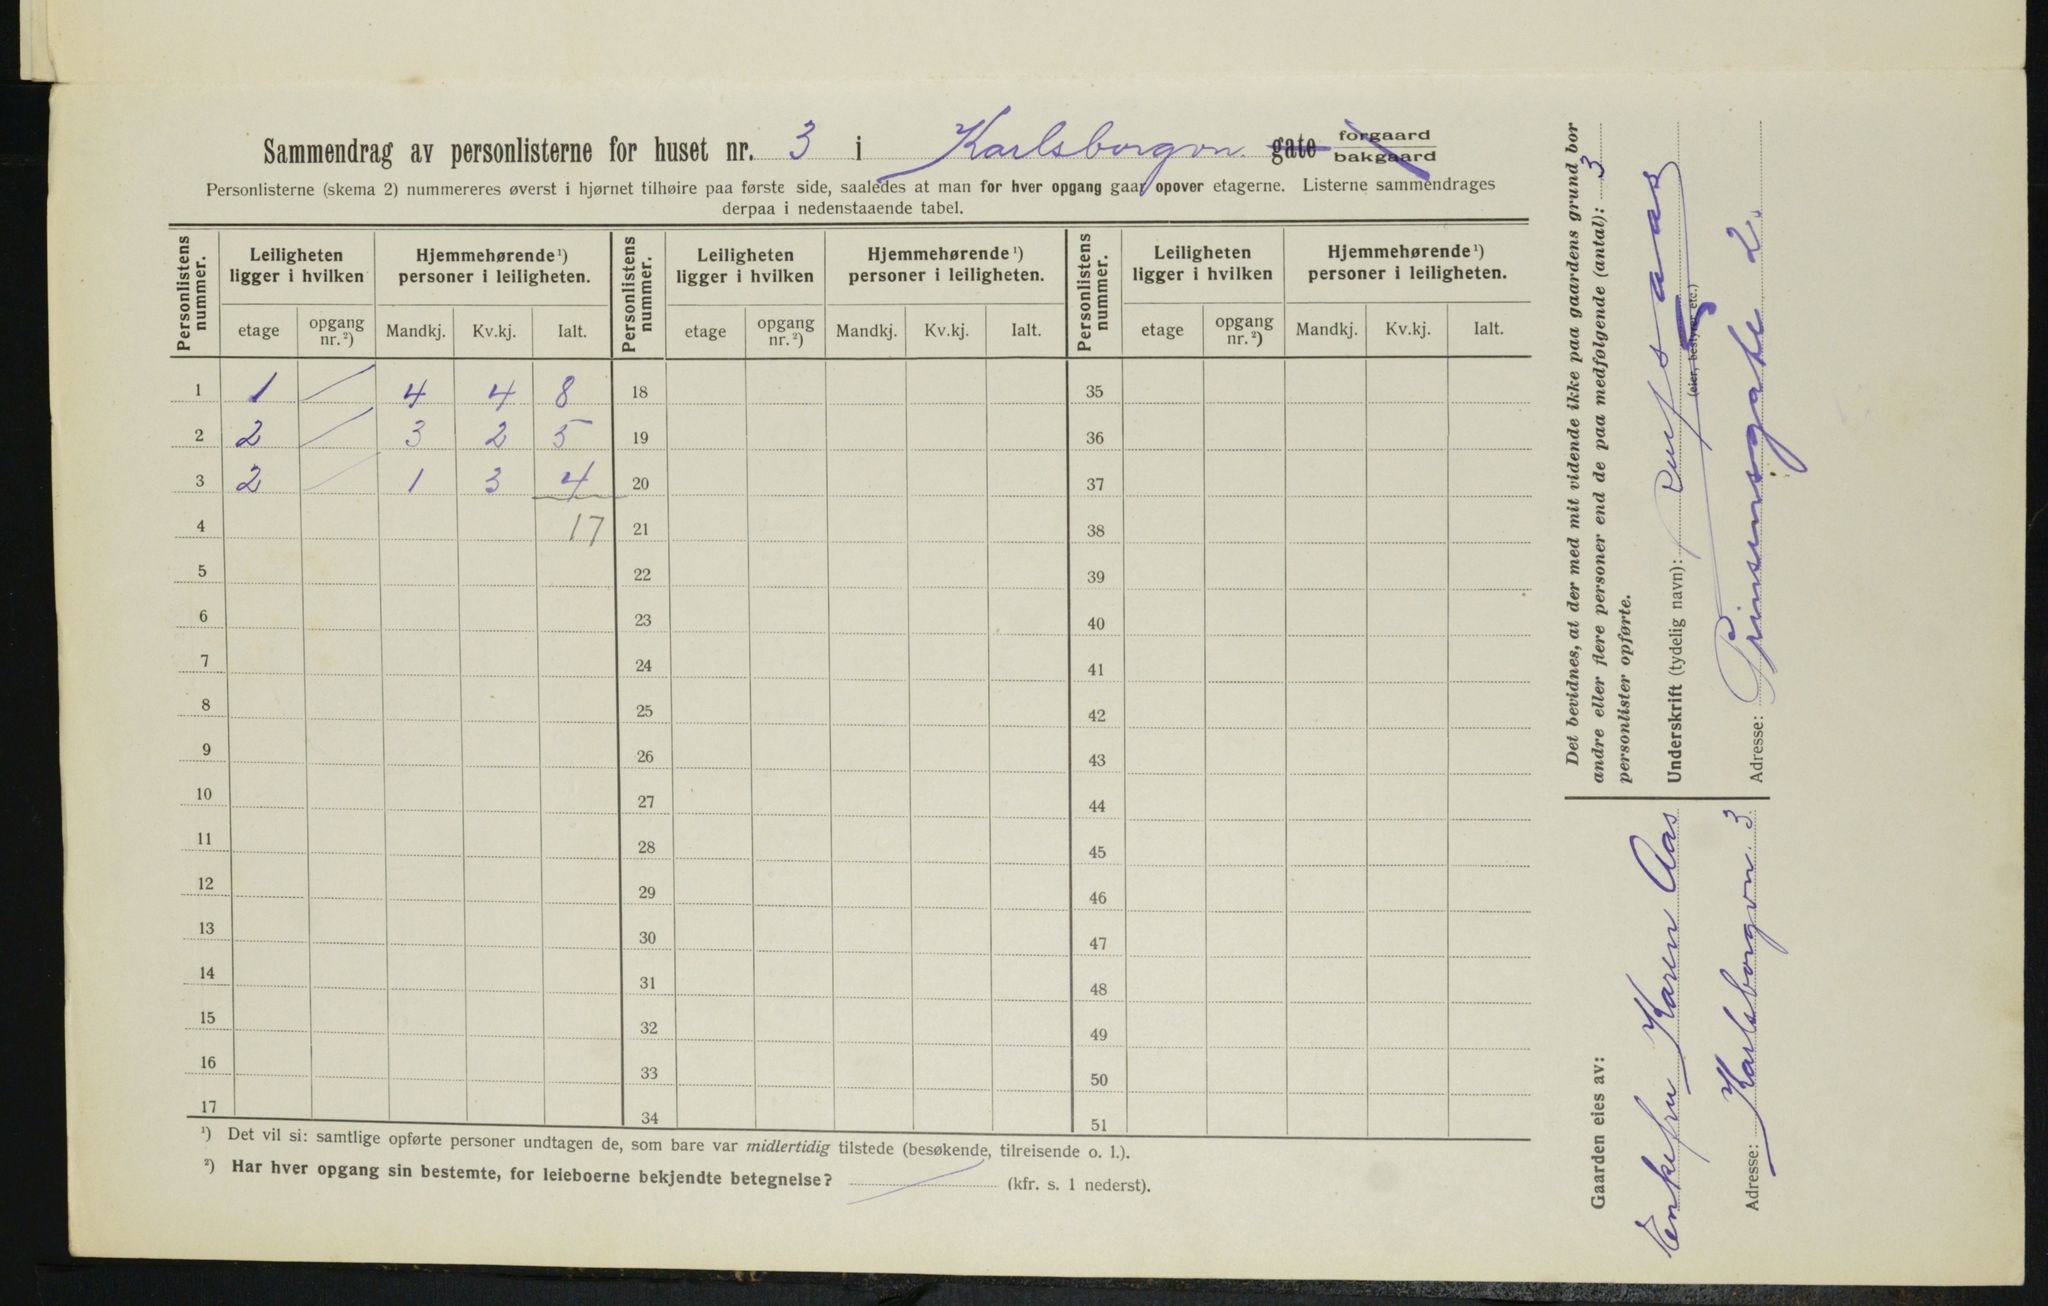 Sammendrag av personlisterne for huset nr. 3 i Karlsborgvn. gate forgaard
bakgaard
Personlisterne (skema 2) nummereres øverst i hjørnet tilhøire paa første side, saaledes at man for hver opgang gaar opover etagerne. Listerne sammendrages
derpaa i nedenstaaende tabel.
Personlistens nummer. Leiligheten ligger i hvilken Hjemmehørende ¹) personer i leiligheten. Personlistens nummer. Leiligheten ligger i hvilken Hjemmehørende ¹) personer i leiligheten. Personlistens nummer. Leiligheten ligger i hvilken Hjemmehørende ¹) personer i leiligheten.
etage opgang nr. ²) Mandkj. Kv.kj. Ialt. etage opgang nr. ²) Mandkj. Kv.kj. Ialt. etage opgang nr. ²) Mandkj. Kv.kj. Ialt.
1 1 / 4 4 8 18 35
2 2 / 3 2 5 19 36
3 2 / 1 3 4 20 37
4 17 21 38
5 22 39
6 23 40
7 24 41
8 25 42
9 26 43
10 27 44
11 28 45
12 29 46
13 30 47
14 31 48
15 32 49
16 33 50
17 34 51
¹) Det vil si: samtlige opførte personer undtagen de, som bare var midlertidig tilstede (besøkende, tilreisende o. l.).
²) Har hver opgang sin bestemte, for leieboerne bekjendte betegnelse? / (kfr. s. 1 nederst).
Det bevidnes, at der med mit vidende ikke paa gaardens grund bor
andre eller flere personer end de paa medfølgende (antal): 3
personlister opførte.
Underskrift (tydelig navn): Aas
(eier, bestyrer etc.)
Adresse: Prinsensgate 2.
Gaarden eies av:
Enkefru Karen Aas
Adresse: Karlsborgvn. 3